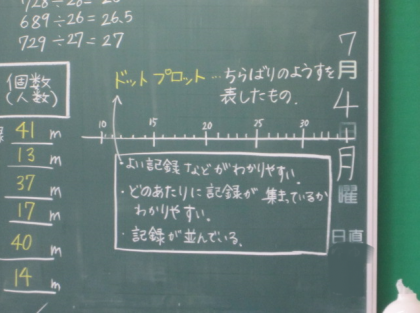 689÷26=26.5
729÷27=27
個数
(人数)
41 m
13 m
37 m
17 m
40 m
14 m
ドットプロット…ちらばりのようすを
表したもの.
10 15 20 25 30
・よい記録などがわかりやすい.
・どのあたりに記録が集まっているか
わかりやすい。
・記録が並んでいる.
7
月
4
日
月
曜
日直